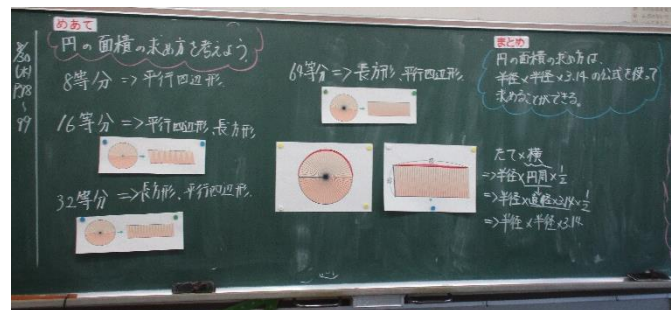 めあて
円の面積の求め方を考えよう。
(木)
P98
〜
99
8等分 => 平行四辺形
16等分 => 平行四辺形、長方形
32等分 => 長方形、平行四辺形
64等分 => 長方形、平行四辺形
まとめ
円の面積の求め方は、
半径×半径×3.14の公式を使って
求めることができる。
たて×横
=> 半径×円周×1/2
=> 半径×直径×3.14×1/2
=> 半径×半径×3.14